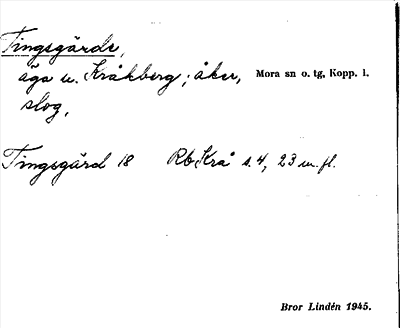 Tingsgärde,
äga u. Kråkberg; åker, Mora sn o. tg, Kopp. l.
slog,
Tingsgärd 18 Rb Krå s. 4, 23 m. fl.
Bror Lindén 1945.